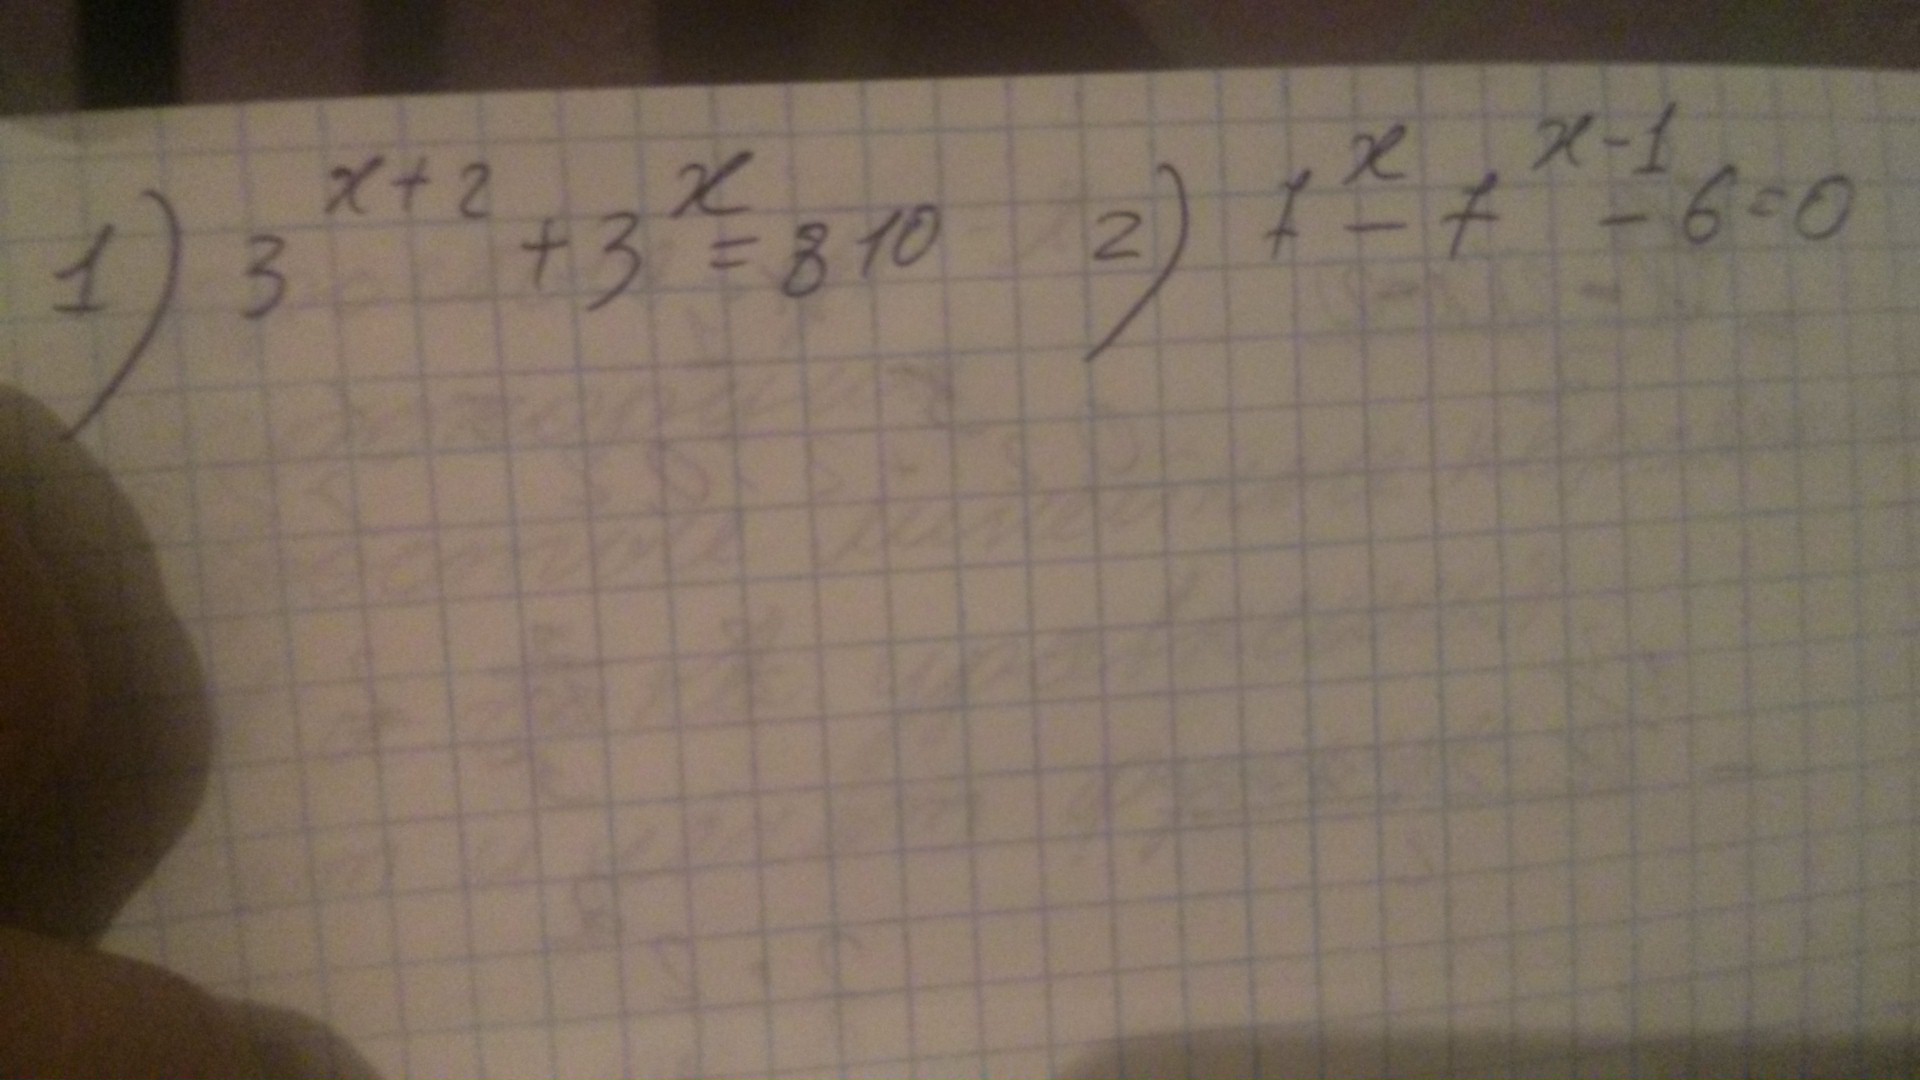 1) 3^{x+2} + 3^x = 810   2) 7^x - 7^{x-1} - 6 = 0